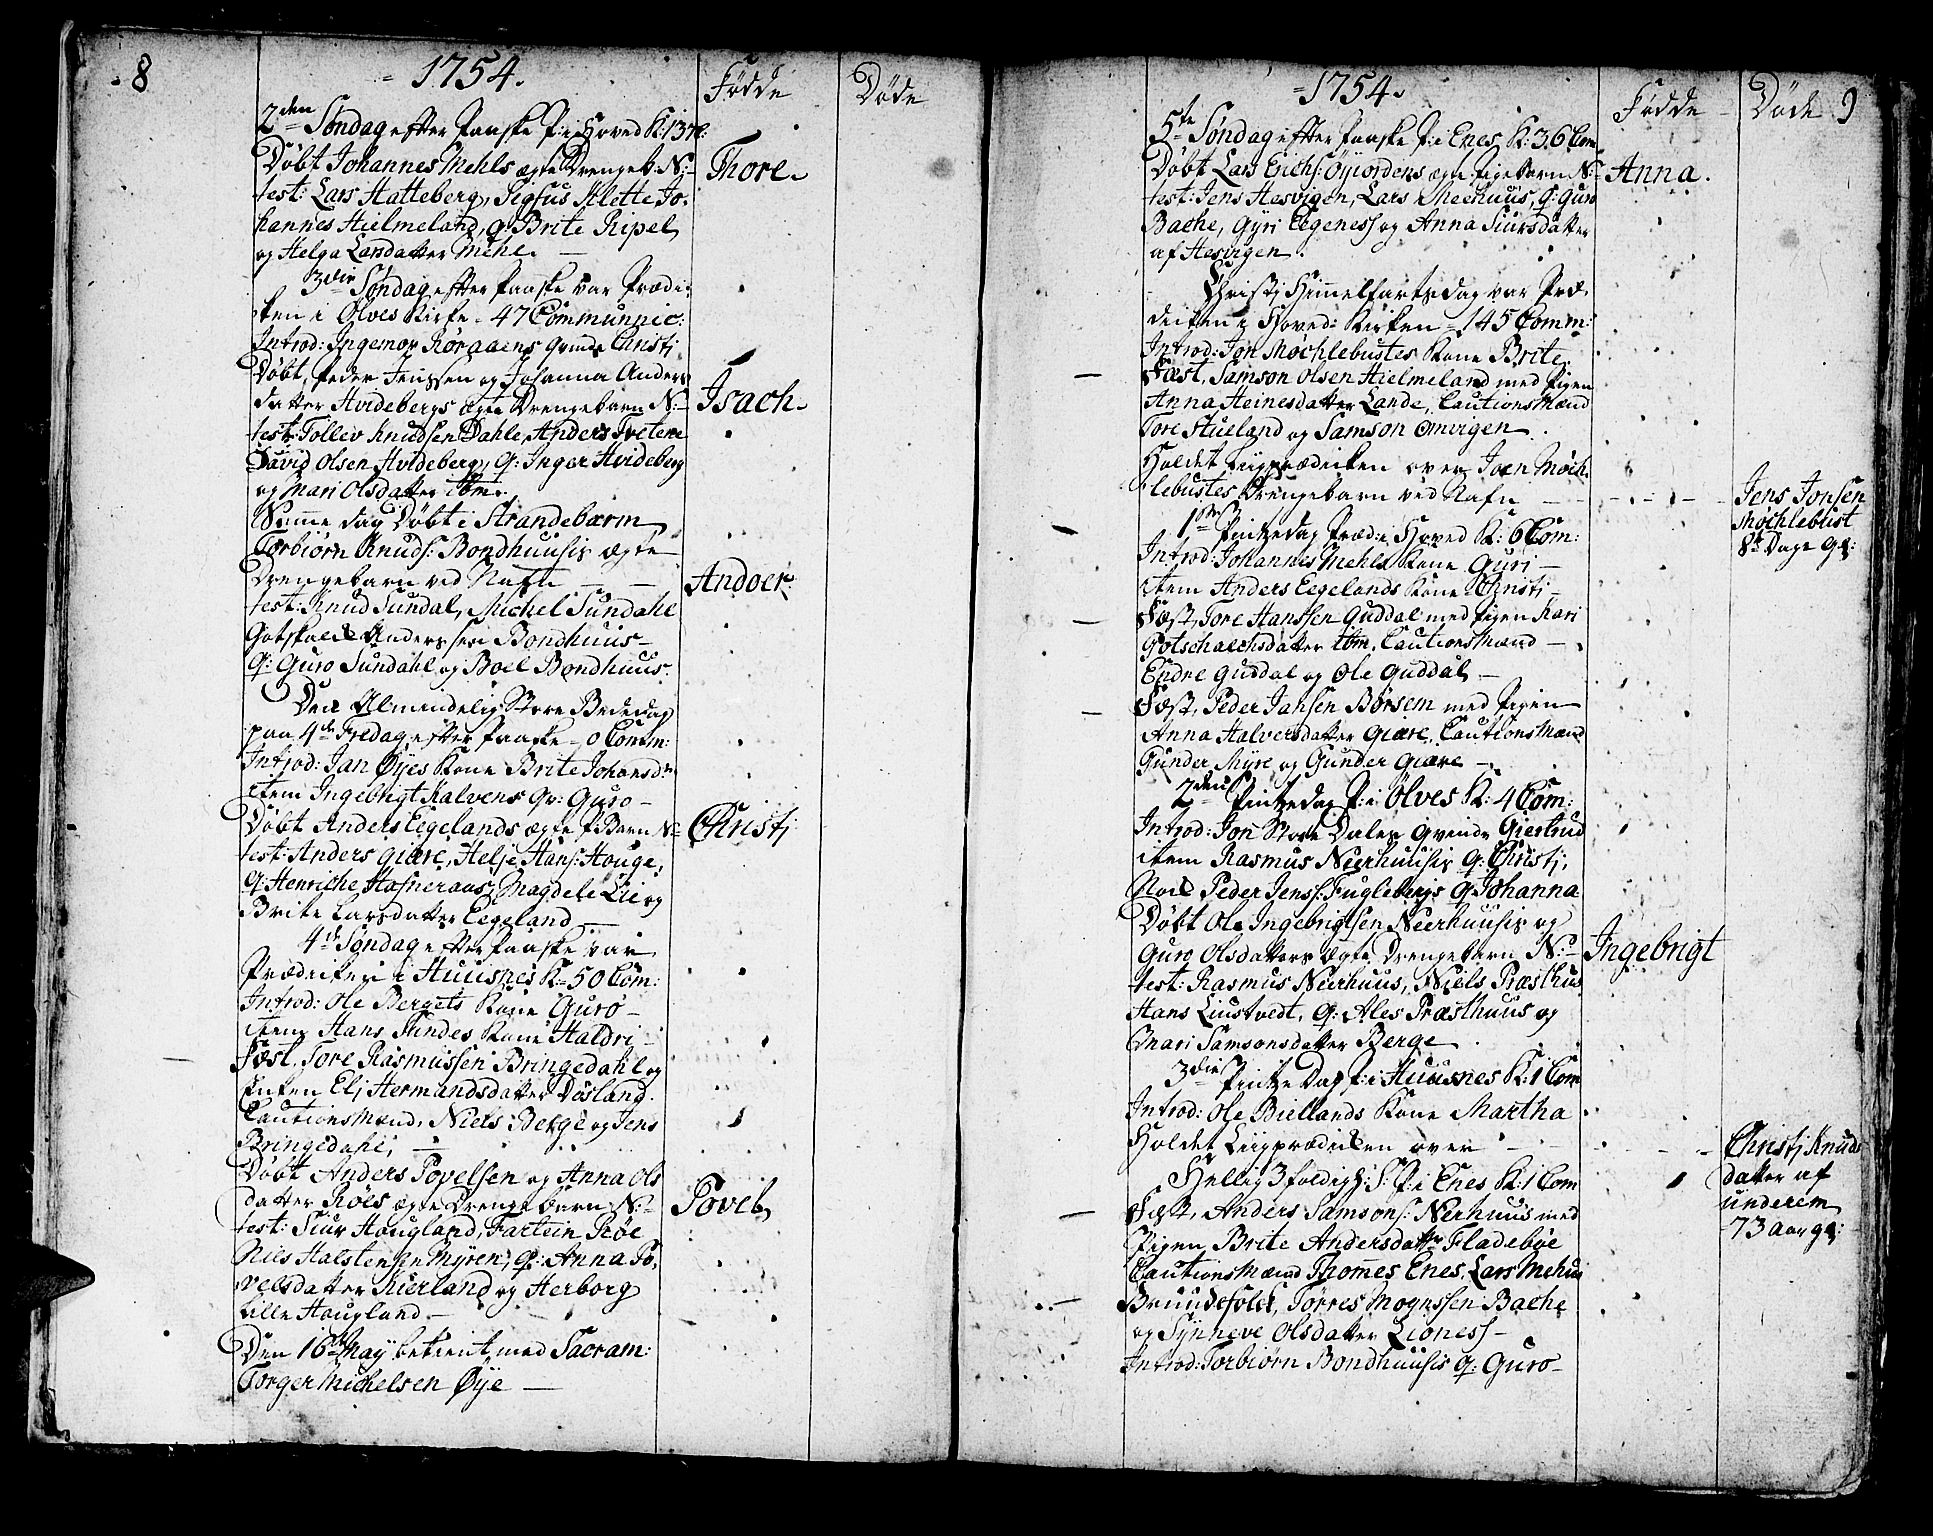 8
1754.
Fødde
Døde
2den Søndag efter Paaske P: i Hoved K: 137 C:
Døbt Johannes Mehls ægte Drengeb. N:
Thore.
test: Lars Hatteberg, Sigfus Klette Jo-
hannes Hielmeland, Q: Brite Ripel
og Helga Larsdatter Mehl.
3die Søndag efter Paaske var Prædi-
ken i Ølves Kirke. 47 Communnic:
Introd: Ingemor Røraaens Qvinde Christj
Døbt, Peder Jenssen og Johanna Anders
datter Hvidebergs ægte Drengebarn N:
Isach.
test: Tollev Knudsen Dahle, Anders Tvetene
David Olsen Hvideberg, Q: Inger Hvideberg
og Mari Olsdatter ibm:
Samme dag Døbt i Strandebarm
Torbiørn Knuds: Bondhuusis ægte
Drengebarn ved Nafn
Andoer
test: Knud Sundal, Michel Sundahl
Gotskalk Anderssen Bondhuus
Q: Guro Sundahl og Boel Bondhuus.
Den Almindelig Store Bededag
paa 4de Fredag efter Paaske - 0 Comm:
Introd: Jan Øyes Kone Brite Johansdr
item Ingebrigt Kalvens Qv: Guro
Døbt Anders Eegelands ægte P Barn N
Christj
test: Anders Giære, Helje Hans: Houge,
Q: Henriche Hafneraas, Magdele Lie og
Brite Larsdatter Eegeland
4de Søndag efter Paaske var
Prædiken i Huusnes K: 50 Com:
Introd: Ole Bergets Kone Guro
item Hans Tundes Kone Haldri
Fæst, Tore Rasmussen Bringedahl og
Enken Elj Hermandsdatter Døsland.
Cautions Mænd, Niels Berge og Jens
Bringedahl,
Døbt Anders Povelsen og Anna Ols
datter Røes ægte Drengebarn N:
Povel
test: Siur Hougland, Fartein Røe
Nils Halstensen Myren, Q: Anna Po-
velsdatter Kierland og Herborg
lille Hougland
Den 16de May betient med Sacram:
Torger Michelsen Øye
1754.
Fødde
Døde
9
5te Søndag efter Paaske P: i Enes K: 36 Com
Døbt Lars Erichs: Øyiordens ægte Pigebarn N:
Anna.
test: Jens Hesvigen, Lars Meehuus, Q: Guro
Bache, Gyri Eegeness og Anna Siursdatter
af Hesvigen.
Christj Himmelfarts dag var Præ-
diken i Hoved-Kirken - 145 Comm:
Introd: Jon Møchlebustes Kone Brite
Fæst, Samson Olsen Hielmeland med Pigen
Anna Heinesdatter Lande, Cautions Mænd
Tore Stueland og Samson Omvigen
Holdet Liigprædiken over Joen Møch-
lebustes Drengebarn ved Nafn
Jens Jonsen
Møchlebust
8te Dage gl:
1ste Pintzedag Præd: i Hoved K: 6 Com:
Introd: Johannes Mehls Kone Guri
item Anders Eegelands Kone Christj
Fæst, Tore Hanssen Guddal med Pigen Kari
Gotschalchsdatter ibm, Cautions Mænd
Endre Guddal og Ole Guddal
Fæst, Peder Jahsen Børsem med Pigen
Anna Halversdatter Giære, Cautions Mænd
Gunder Myre og Gunder Giære
2den Pintzedag P: i Ølves K: 4 Com:
Introd: Jon Store Dales Qvinde Giertrud
item Rasmus Neerhuusis Q: Christj,
Peder Jenss: Fuglebergs Q: Johanna
Døbt Ole Ingebrigtsen Neerhuusis og
Guro Olsdatters ægte Drengebarn N:
Ingebrigt
test: Rasmus Neerhuus, Niels Præsthuus
Hans Liustvedt, Q: Ales Præsthuus og
Mari Samsonsdatter Berge
3die Pintze Dag P: i Huusnes K: 1 Com
Introd: Ole Biellands Kone Martha
Holdet Liigprædiken over
Christj Knuds
datter af
underem
73 aar gl:
Hellig 3foldigh: S: P: i Enes K: 1 Com
Fæst, Anders Samsons: Nerhuus med
Pigen Brite Andersdatter Fladebøe
Cautions Mænd Thomes Enes, Lars Mehuus
Bruudefolck, Tørres Mognssen Bache
og Synneve Olsdatter Lioness
Introd: Torbiørn Bondhuusis Q: Guro